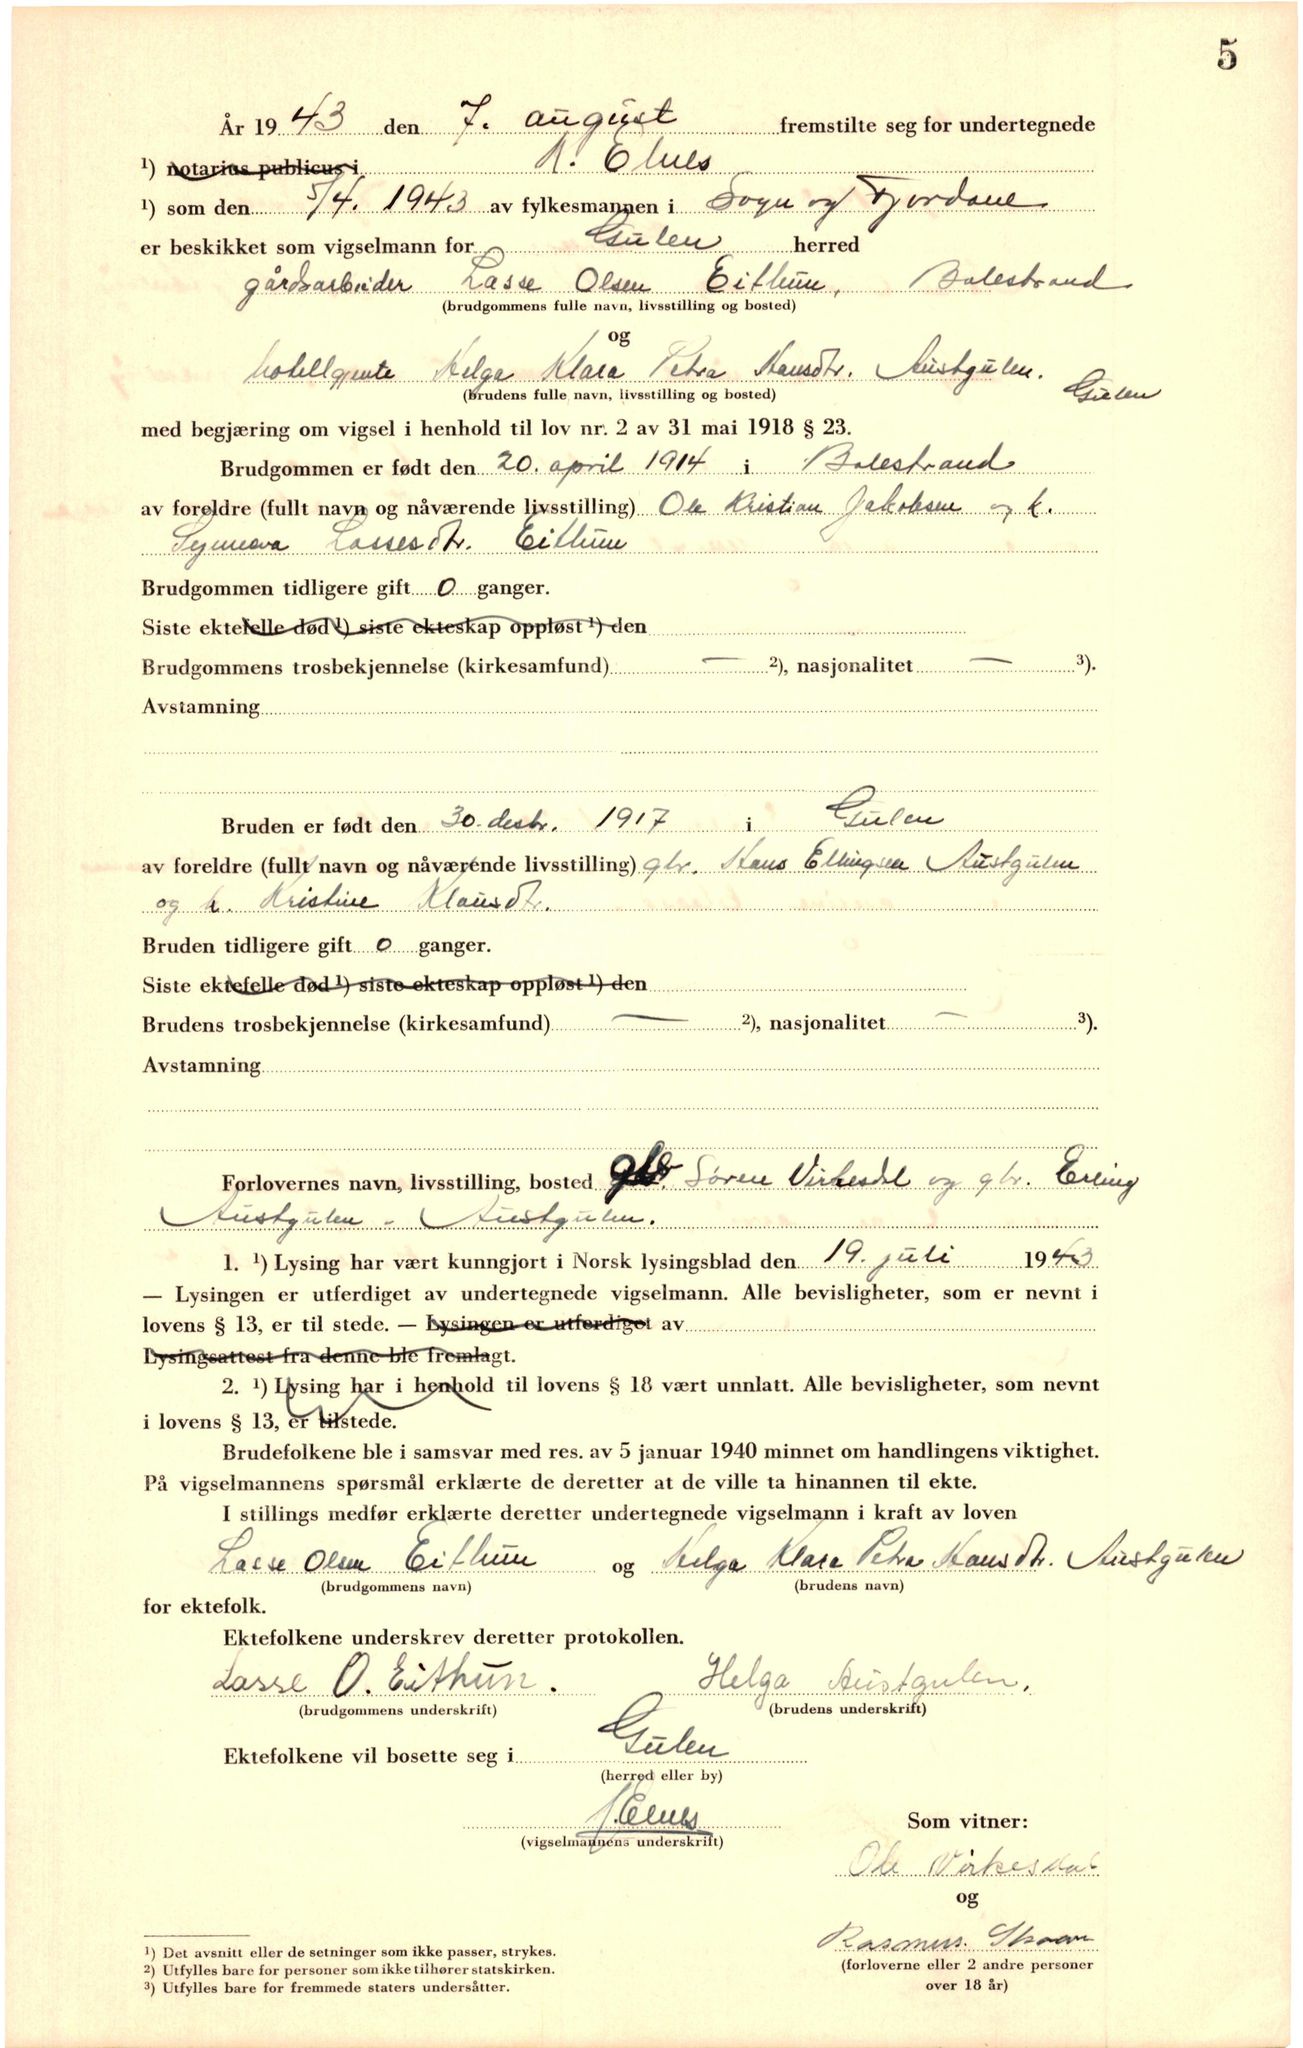 5
År 1943 den 7. august fremstilte seg for undertegnede
¹) notarius publicus i
¹) som den 5/4. 1943 av fylkesmannen i Sogn og Fjordane
er beskikket som vigselmann for Gulen herred
gårdsarbeider Lasse Olsen Eithun, Balestrand
(brudgommens fulle navn, livsstilling og bosted)
og
hotellgjente Helga Klara Petra Hansdtr. Austgulen. Gulen
(brudens fulle navn, livsstilling og bosted)
med begjæring om vigsel i henhold til lov nr. 2 av 31 mai 1918 § 23.
Brudgommen er født den 20. april 1914 i Balestrand
av foreldre (fullt navn og nåværende livsstilling) Ole Kristian Jakobsen og h.
Synneva Lassesdtr. Eithun
Brudgommen tidligere gift 0 ganger.
Siste ektefelle død ¹) siste ekteskap oppløst ¹) den
Brudgommens trosbekjennelse (kirkesamfund) — ²), nasjonalitet — ³).
Avstamning
Bruden er født den 30. desbr. 1917 i Gulen
av foreldre (fullt navn og nåværende livsstilling) gbr. Hans Ellingsen Austgulen
og h. Kristine Klausdtr.
Bruden tidligere gift 0 ganger.
Siste ektefelle død ¹) siste ekteskap oppløst ¹) den
Brudens trosbekjennelse (kirkesamfund) — ²), nasjonalitet — ³).
Avstamning
Forlovernes navn, livsstilling, bosted gbr. Søren Virkesdal og gbr. Erling
Austgulen - Austgulen.
1. ¹) Lysing har vært kunngjort i Norsk lysingsblad den 19. juli 1943
— Lysingen er utferdiget av undertegnede vigselmann. Alle bevisligheter, som er nevnt i
lovens § 13, er til stede. — Lysingen er utferdiget av
Lysingsattest fra denne ble fremlagt.
2. ¹) Lysing har i henhold til lovens § 18 vært unnlatt. Alle bevisligheter, som nevnt
i lovens § 13, er tilstede.
Brudefolkene ble i samsvar med res. av 5 januar 1940 minnet om handlingens viktighet.
På vigselmannens spørsmål erklærte de deretter at de ville ta hinannen til ekte.
I stillings medfør erklærte deretter undertegnede vigselmann i kraft av loven
Lasse Olsen Eithun og Helga Klara Petra Hansdtr. Austgulen
(brudgommens navn) (brudens navn)
for ektefolk.
Ektefolkene underskrev deretter protokollen.
Lasse O. Eithun. Helga Austgulen.
(brudgommens underskrift) (brudens underskrift)
Ektefolkene vil bosette seg i Gulen
(herred eller by)
(vigselmannens underskrift)
Som vitner:
Ole Virkesdal
og
Rasmus
(forloverne eller 2 andre personer
over 18 år)
¹) Det avsnitt eller de setninger som ikke passer, strykes.
²) Utfylles bare for personer som ikke tilhører statskirken.
³) Utfylles bare for fremmede staters undersåtter.